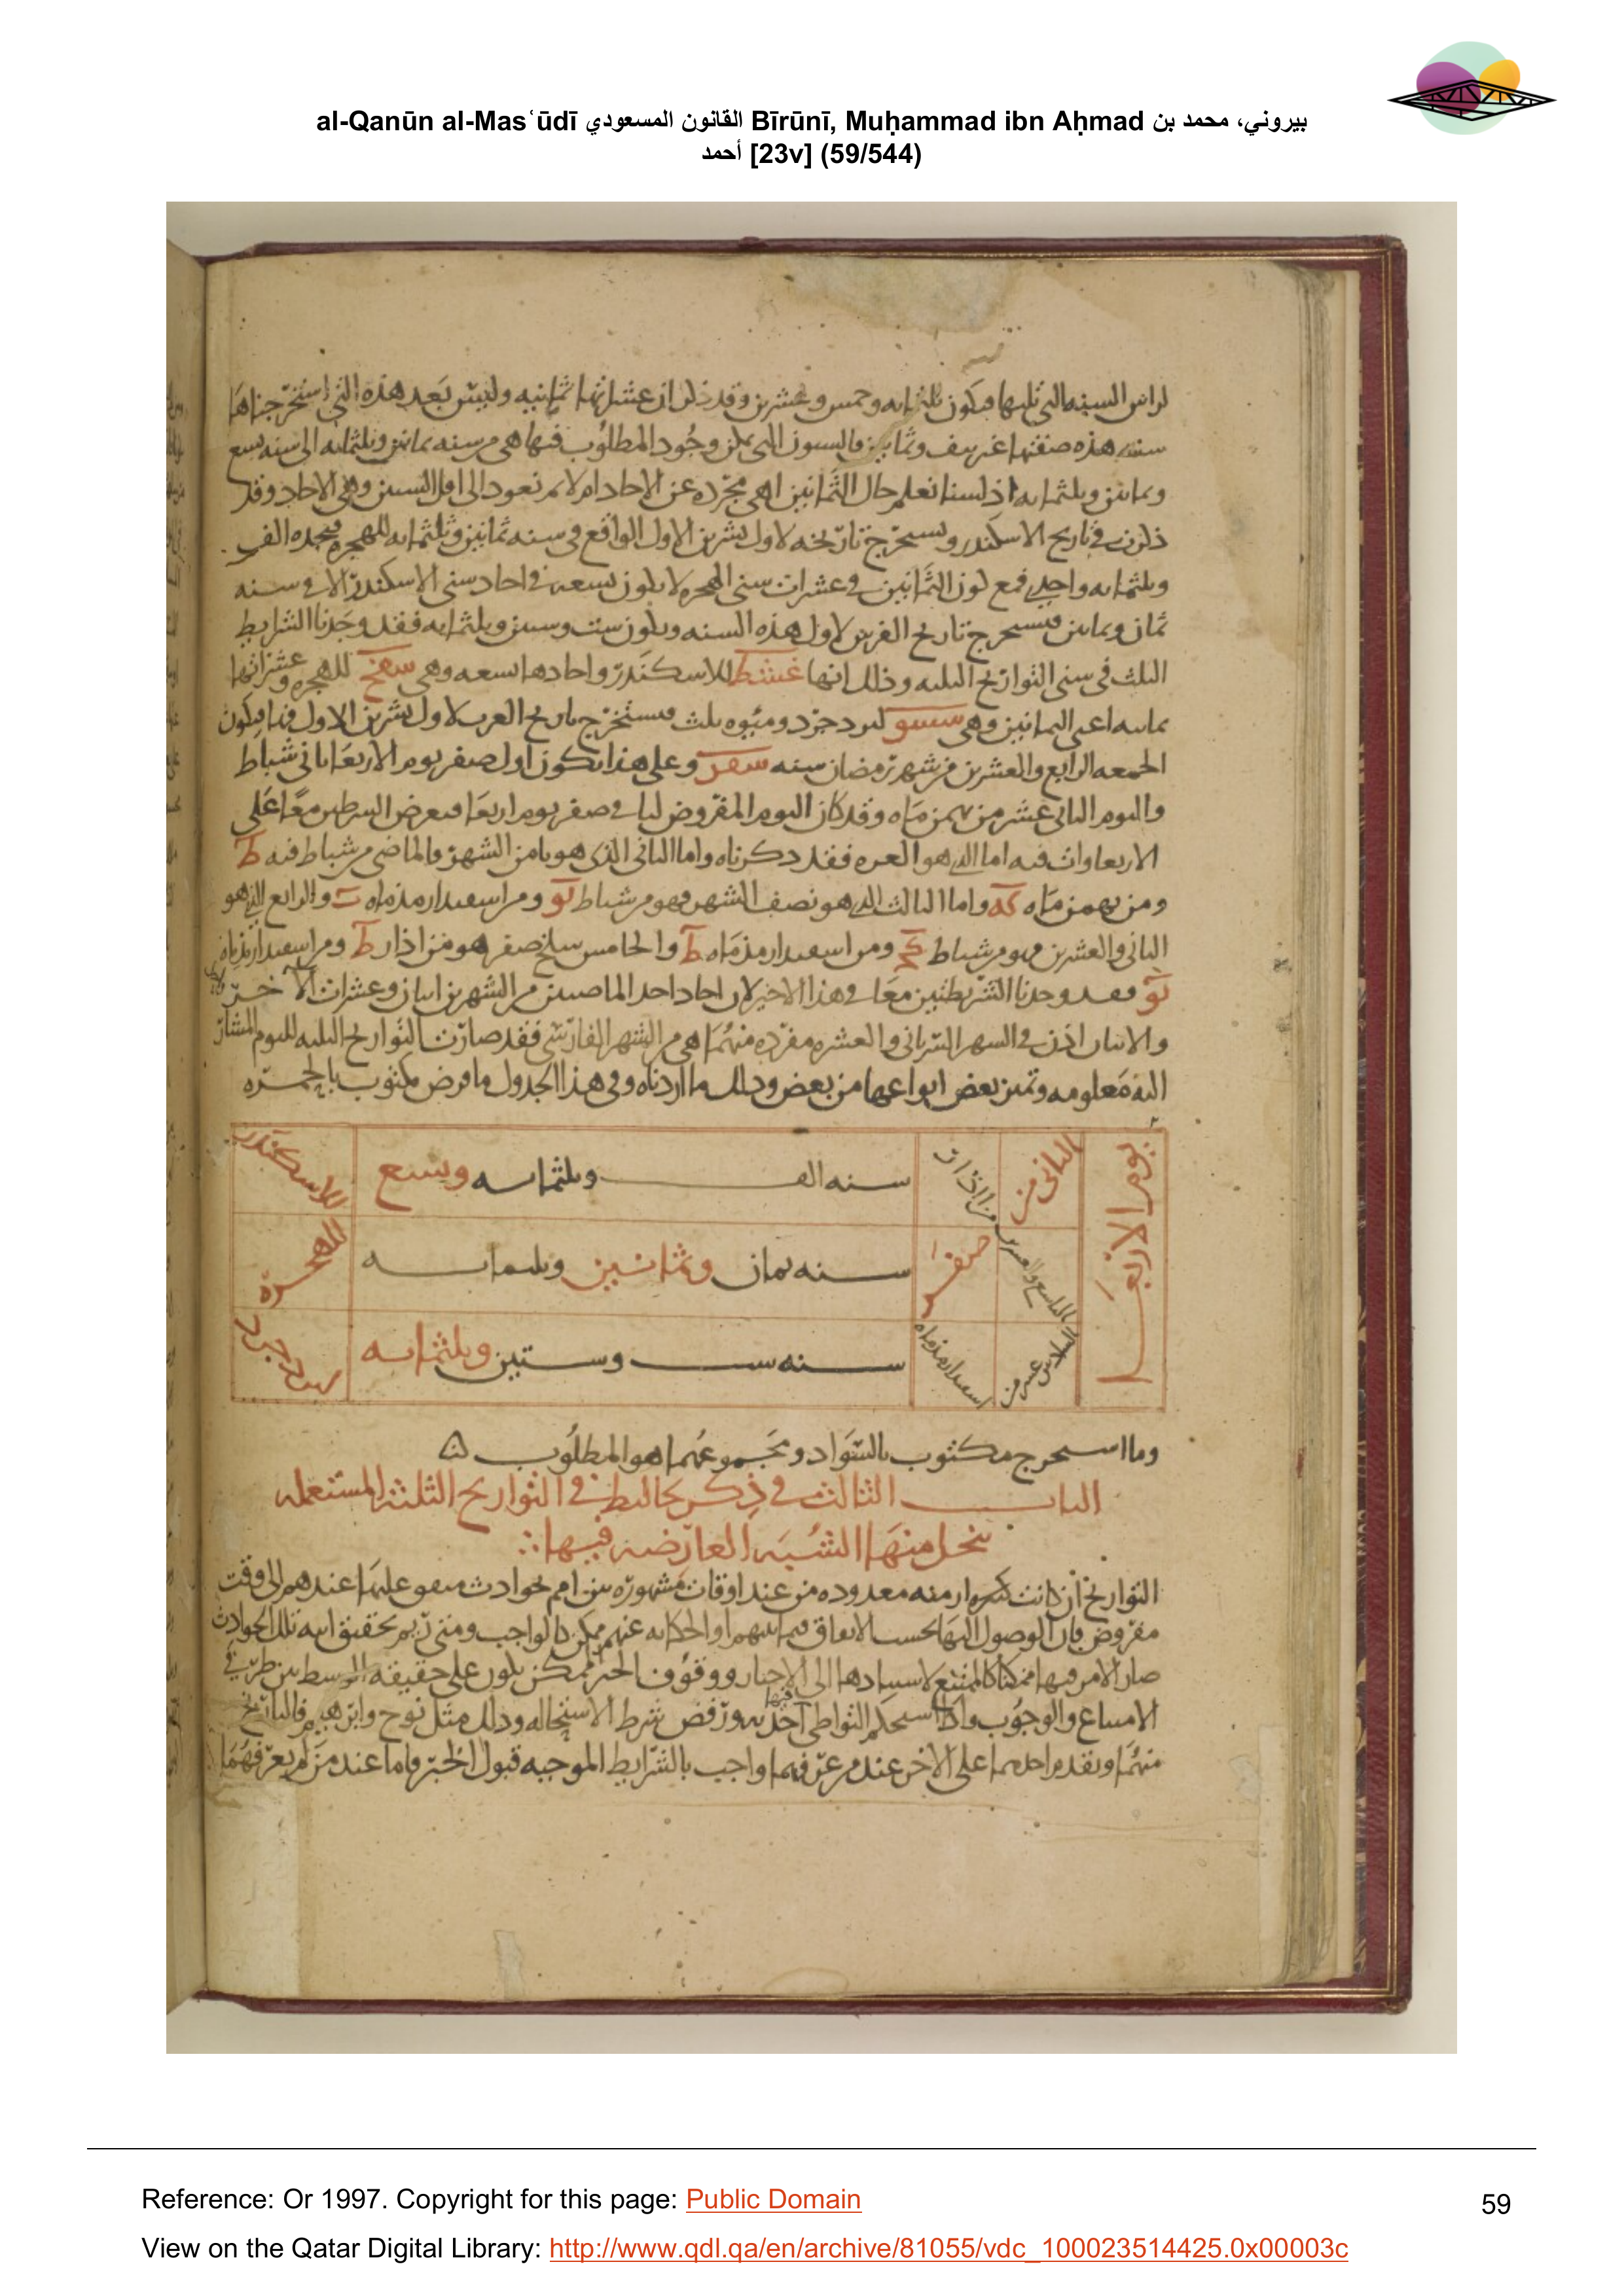 al-Qanūn al-Masʿūdī القانون المسعودي Bīrūnī, Muḥammad ibn Aḥmad بيروني، محمد بن
أحمد [23v] (59/544)
لراس السنه التى تليها فيكون ثلثمايه وخمس وعشرين وقد ذكر ان عشراتها ثمانيه وليس بعد هذه التى استخرجناها
سنه هذه صفتها غير نيف وثمانين فالسنون التى يمكن وجود المطلوب فيها هى من سنه ثمانين وثلثمايه الى سنه تسع
وثمانين وثلثمايه اذ لسنا نعلم حال الثمانين اهى مجرده عن الاحاد ام لا ثم نعود الى اول السنين وهى الاحاد وقد
ذكرت فى تاريخ الاسكندر ونستخرج تاريخه لاول تشرين الاول الواقع فى سنه ثمانين وثلثمايه للهجره فنجده الف
وثلثمايه واحدى فمع كون الثمانين فى عشرات سنى الهجره لا يكون تسعه فى احاد سنى الاسكندر الا فى سنه
ثمان وثمانين فنستخرج تاريخ الفرس لاول هذه السنه ويكون ست وستين وثلثمايه فقد وجدنا الشرايط
الثلث فى سنى التواريخ الثلثه وذلك انها غشط للاسكندر واحادها تسعه وهى شفح للهجره وعشراتها
ثمانيه اعنى الثمانين وهى شسو ليزدجرد ومئوه ثلث فنستخرج تاريخ العرب لاول تشرين الاول فيها فيكون
الجمعه الرابع والعشرين من شهر رمضان سنه وعلى هذا يكون اول صفر يوم الاربعا ثانى شباط
واليوم الثانى عشر من بهمن ماه وقد كان اليوم المفروض لنا فى صفر يوم اربعا فنعرض الشرطين معا على
الاربعاوات فيه اما الذى هو الغره فقد ذكرناه واما الثانى الذى هو ثامن الشهر فالماضى من شباط فيه ط
ومن بهمن ماه واما الثالث الذى هو نصف الشهر فهو من شباط يو ومن اسفندارمذ ماه والرابع الذى هو
الثانى والعشرين فهو من شباط كح ومن اسفندارمذ ماه ط والخامس سلخ صفر هو من اذار ومن اسفندارمذ ماه
يو فقد وجدنا الشريطتين معا فى هذا الاخير لان احاد احد الماضيين من الشهرين اثنان وعشرات الاخر
والاثنان اذن فى الشهر السريانى والعشره مفرده منهما هى من الشهر الفارسى فقد صارت التواريخ الثلثه لليوم المشار
اليه معلومه وتميز بعض انواعها من بعض وذلك ما اردناه وفى هذا الجدول ما فرض مكتوب بالحمره
يوم الاربعا
الثانى من
من اذار
سنه الف وثلثمايه وتسع
للاسكندر
التاسع والعشرين
صفر
سنه ثمان وثمانين وثلثمايه
للهجره
السادس عشر من
اسفندارمذ ماه
سنه ست وستين وثلثمايه
ليزدجرد
وما استخرج مكتوب بالسواد ومجموعهما هو المطلوب
الباب الثالث فى ذكر فى التواريخ الثلثه المستعمله
ينحل منها الشبه العارضه فيها
التواريخ اذ كانت معدوده من عند اوقات مشهوره بين امم لحوادث متفق عليها عندهم الى وقت
مفروض فان الوصول اليها بحسب الاتفاق فيما بينهم او الحكايه عنهم ممكن كالواجب ومتى رم تحقيق تلك الحوادث
صار الامر فيها ممكنا كالممتنع لاستنادها الى الاخبار ووقوف الخبر الممكن يكون على حقيقه الوسط بين طرفى
الامتناع والوجوب واذا استحكم التواطى فيها ورفض شرط الاستحاله وذلك مثل نوح وابرهيم فالتاريخ
منهما وتقدم احدهما على الاخر عند من عرفهما واجب بالشرايط الموجبه قبول الخبر فاما عند من لم يعرفهما
Reference: Or 1997. Copyright for this page: Public Domain
59
View on the Qatar Digital Library: http://www.qdl.qa/en/archive/81055/vdc_100023514425.0x00003c